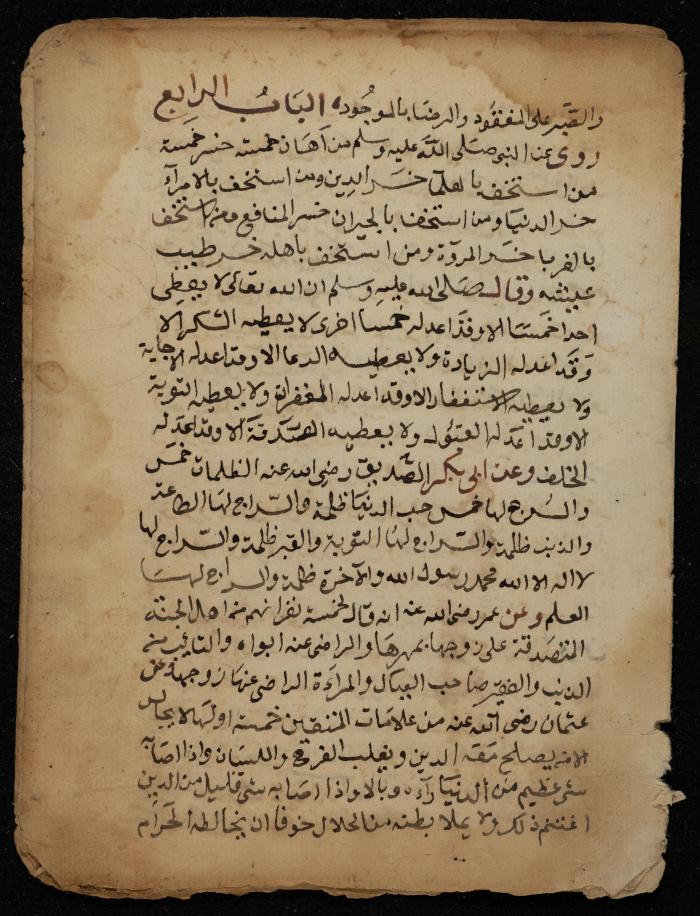 والصبر على المفقود والرضا بالموجود الباب الرابع
روى عن النبي صلى الله عليه وسلم من اهان خمسة خسر خمسة
من استخف بالعلما خسر الدين ومن استخف بالامرآء
خسر الدنيا ومن استخف بالجيران خسر المنافع ومن استخف
بالقربا خسر المروة ومن استخف باهله خسر طيب
عيشه وقال صلى الله عليه وسلم ان الله تعالى لا يعطى
احدا خمسا الا وقد اعد له خمسا اخرى لا يعطيه الشكر الا
وقد اعد له الزيادة ولا يعطيه الدعا الا وقد اعد له الاجابة
ولا يعطيه الاستغفار الا وقد اعد له المغفرة ولا يعطيه التوبة
الا وقد اعد له القبول ولا يعطيه الصدقة الا وقد اعد له
الخلف وعن ابى بكر الصديق رضى الله عنه الظلمات خمس
والسرج لها خمس حب الدنيا ظلمة والسراج لها الطاعة
والذنب ظلمة والسراج لها التوبة والقبر ظلمة والسراج لها
لا اله الا الله محمد رسول الله والآخرة ظلمة والسراج لها
العلم وعن عمر رضى الله عنه انه قال خمسة نفر انهم من اهل الجنة
المتصدقة على زوجها بمهرها والراضى عنه ابواه والتائب من
الذنب والفقير صاحب العيال والمراءة الراضى عنها زوجها وعن
عثمان رضى الله عنه من علامات المتقين خمسة اولها لا يجالس
الا من يصلح معه الدين ويغلب الفرج واللسان واذا اصابه
شى عظيم من الدنيا رآه وبالا واذا اصابه شى قليل من الدين
اغتنم ذلك ولا يملا بطنه من الحلال خوفا ان يخالطه الحرام